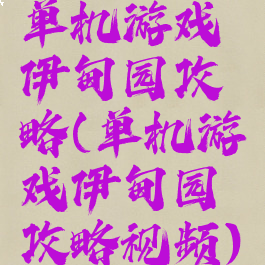 单机游戏
伊甸园攻
略(单机游
戏伊甸园
攻略视频)